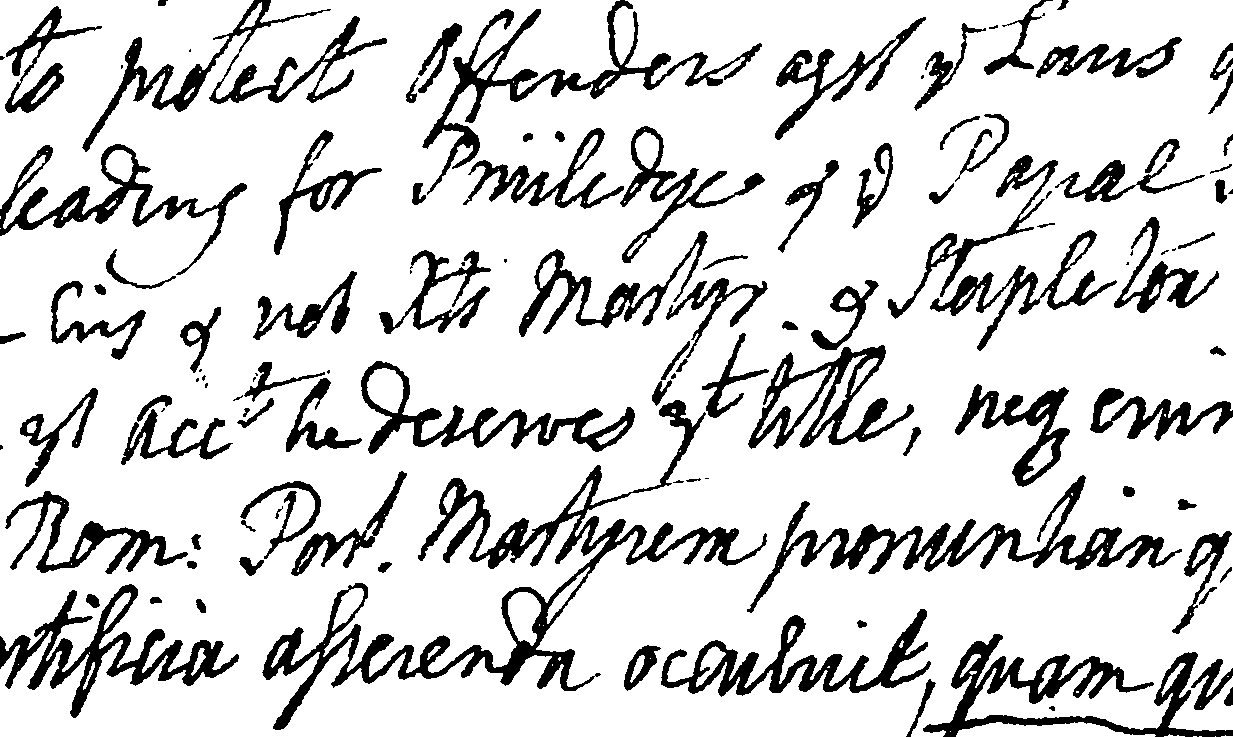 to protect Offenders agst yͤ Laws
leading for Priviledge of yͤ Papal
& not Xts Martyr. & Stapleton
yt Acct he deserves yt title, neq enim
Rom: Pont. Martyrem pronuntian
ntificia asserenda occubuit, quam